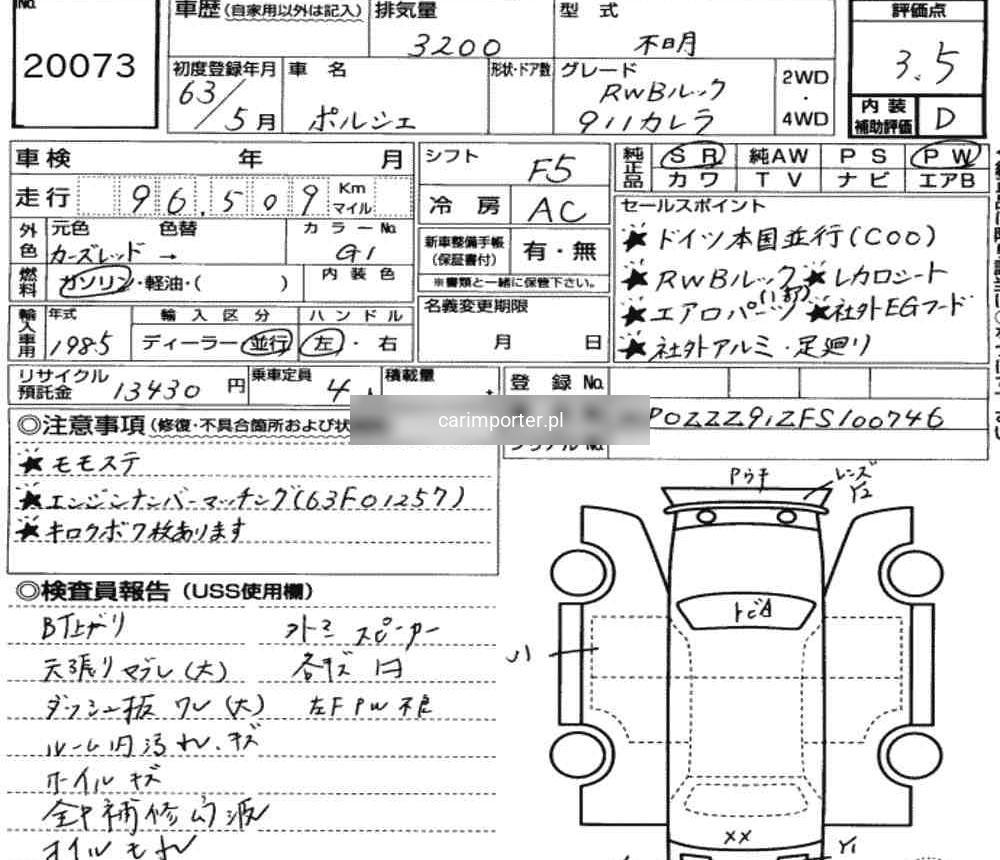 No.
20073
車歴 (自家用以外は記入)
排気量
3200
型式
不明
初度登録年月
63/5月
車名
ポルシェ
形状・ドア数
グレード
RWBルック
911カレラ
2WD
・
4WD
評価点
3.5
内装
補助評価
D
車検 年 月
走行 96.509 Km マイル
外色
元色 色替
カーズレッド →
カラーNo.
G1
燃料
ガソリン・軽油・( )
内装色
輸入車用
年式
1985
輸入区分
ディーラー・並行
ハンドル
左・右
シフト
F5
冷房
AC
新車整備手帳
(保証書付)
有・無
※書類と一緒に保管下さい。
名義変更期限
月 日
純正品
SR 純AW PS PW
カワ TV ナビ エアB
セールスポイント
★ドイツ本国並行(COO)
★RWBルック ★レカロシート
★エアロパーツ ★社外EGフード
★社外アルミ・足廻り
リサイクル
預託金
13430円
乗車定員
4人
積載量
登録No.
POZZZ91ZFS100746
carimporter.pl
◎注意事項 (修復・不具合箇所および状
★モモステ
★エンジンナンバーマッチング(63F01257)
★キロクボ7枚あります
◎検査員報告 (USS使用欄)
BT上がり
天張り (大)
ダッシュ板 ワレ(大)
ルーム内汚れ、キズ
ホイルキズ
全中補修
オイルもれ
外ミ スピーカー
各キズ 凹
左F PW 不良
Pウチ
レンズ
Y2
トビA
ハ
XX
Y1